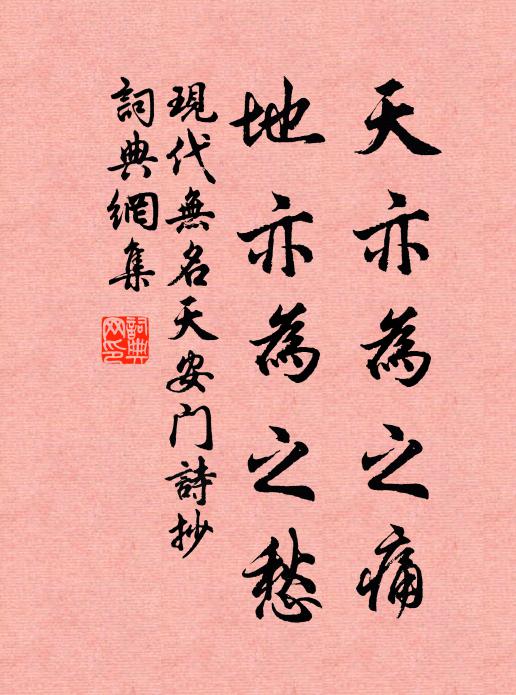 天亦為之痛
地亦為之愁
現代無名天安门詩抄
詞典網集
詞典网印